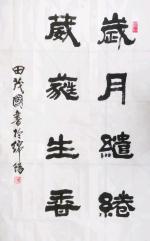 歲月繾綣
葳蕤生香
田茂國書於綿陽